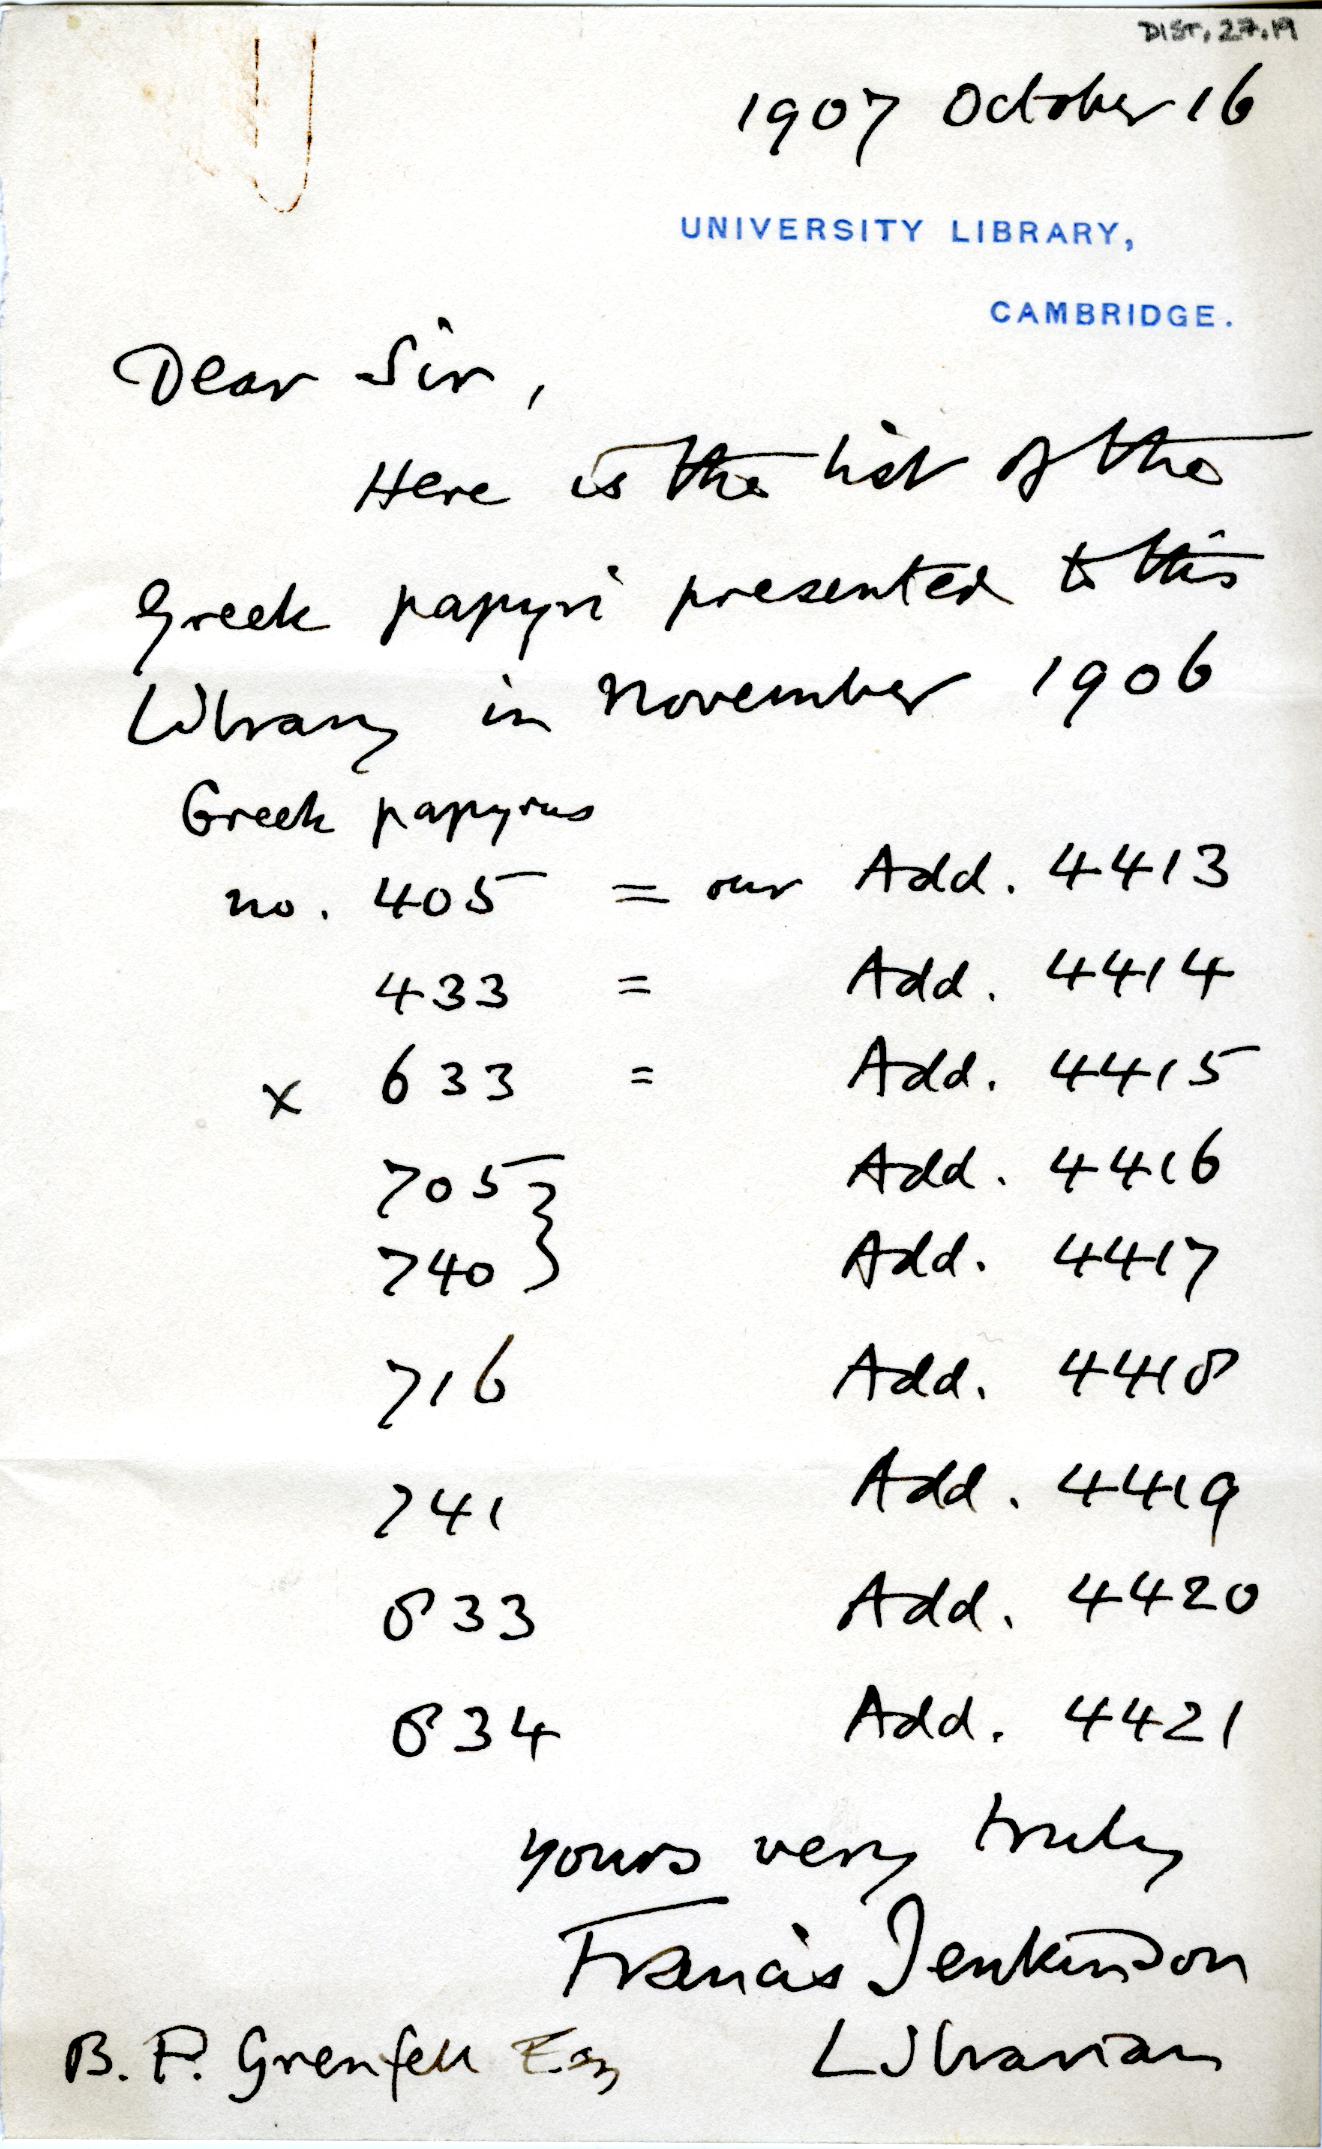 DIST. 27.19
1907 October 16
UNIVERSITY LIBRARY,
CAMBRIDGE.
Dear Sir,
Here is the list of the
Greek papyri presented to this
Library in November 1906
Greek papyrus
no. 405 = our Add. 4413
433 = Add. 4414
x 633 = Add. 4415
705 } Add. 4416
740 } Add. 4417
716 Add. 4418
741 Add. 4419
833 Add. 4420
834 Add. 4421
yours very truly
Francis Jenkinson
Librarian
B. P. Grenfell Esq